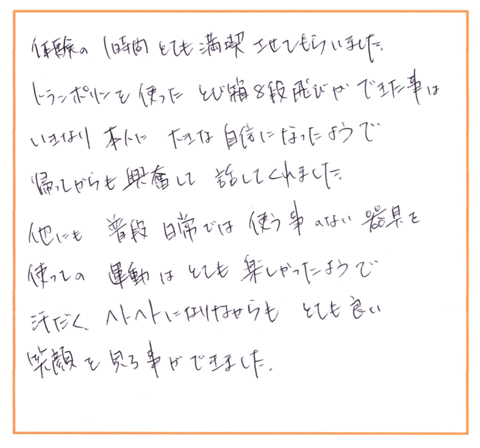 体験の 1時間 とても 満喫 させてもらいました。
トランポリンを 使った とび箱 8段 飛びが できた事は
いきなり 本人に 大きな 自信に なったようで
帰ってからも 興奮して 話してくれました。
他にも 普段 日常では 使う事のない 器具を
使っての 運動は とても 楽しかったようで
汗だく ヘトヘトになりながらも とても良い
笑顔を 見る事ができました。